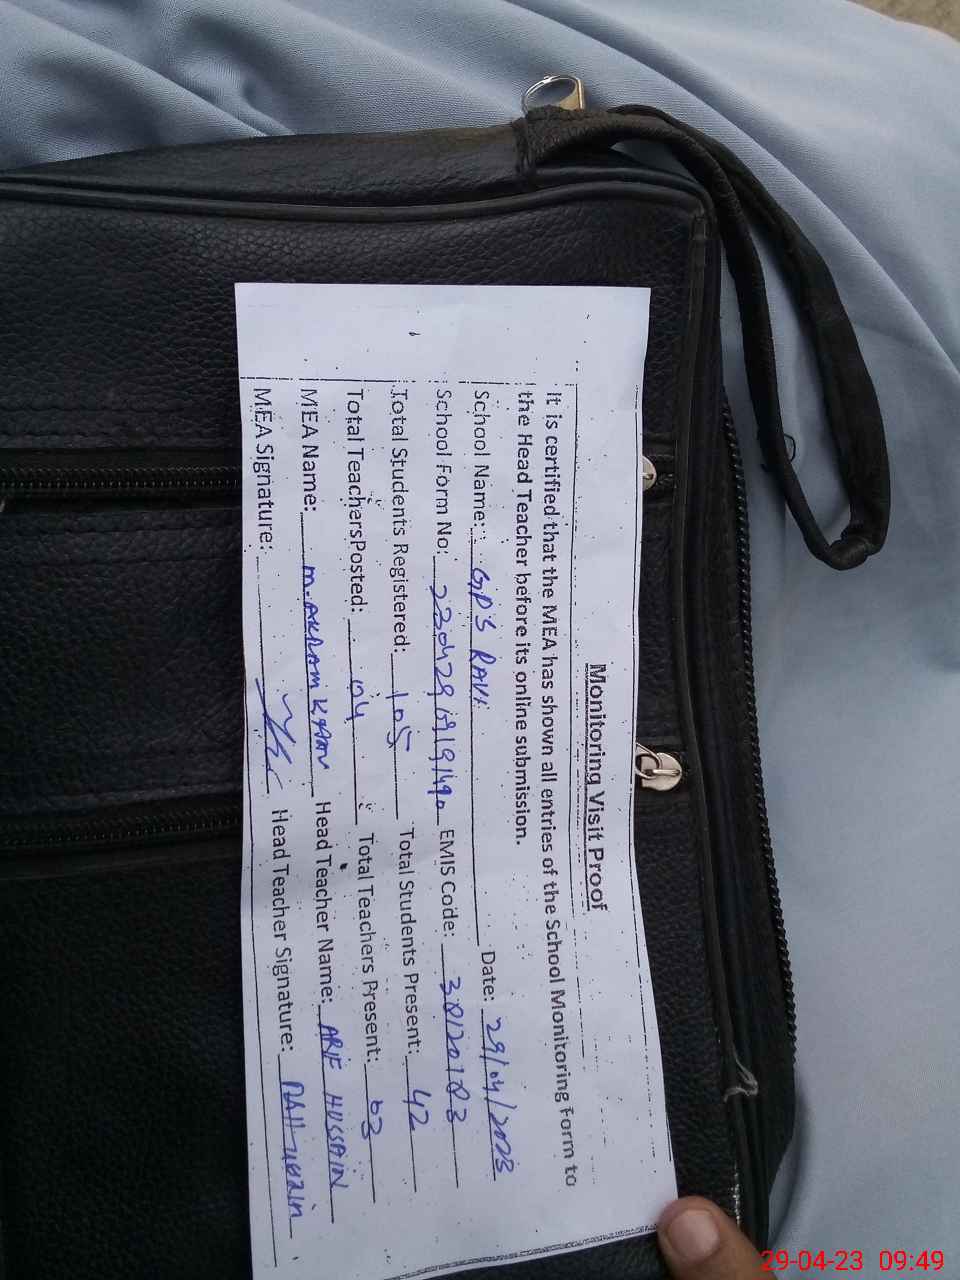 Monitoring Visit Proof
It is certified that the MEA has shown all entries of the School Monitoring Form to
the Head Teacher before its online submission.
School Name: GPS RAVI Date: 29/04/2023
School Form No: EMIS Code: 38120183
Total Students Registered: 105 Total Students Present: 42
Total TeachersPosted: 04 Total Teachers Present: 03
MEA Name: M. AKRAM KHAN Head Teacher Name: ARIF HUSSAIN
MEA Signature: Head Teacher Signature:
29-04-23 09:49